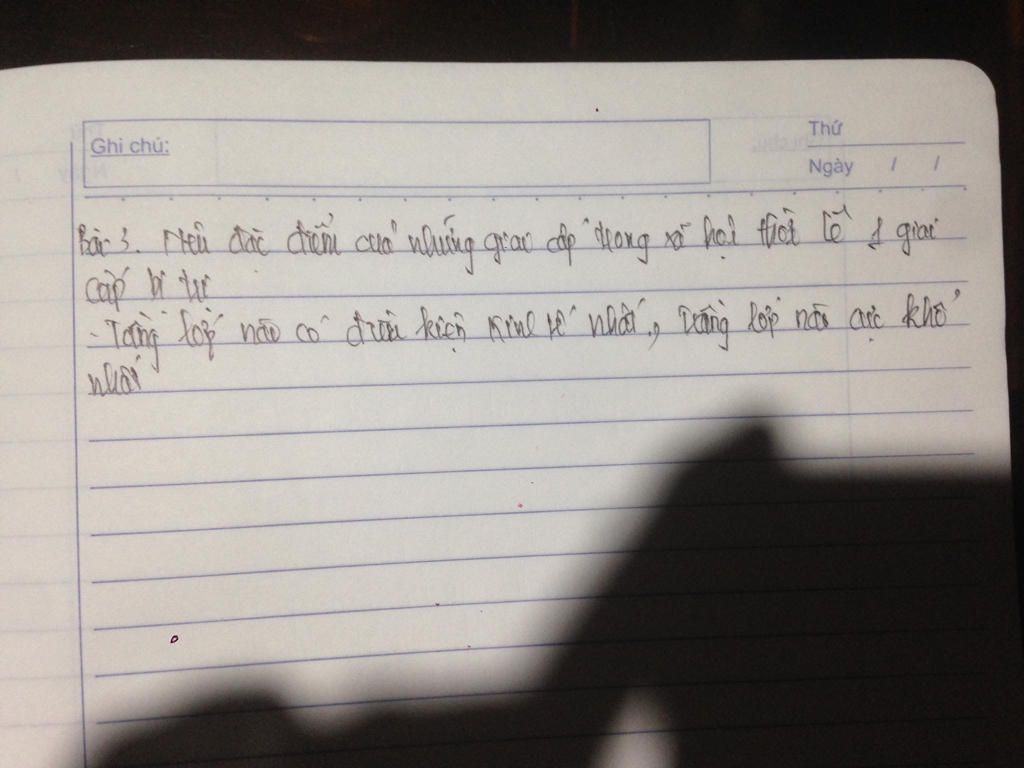 Ghi chú:
Thứ
Ngày / /
Bài 3. Nêu đặc điểm của những giao cấp trong xã hội thời Lê 1 giai
cấp bị trị
- Tầng lớp nào có điều kiện kinh tế nhất, Tầng lớp nào cực khổ
nhất